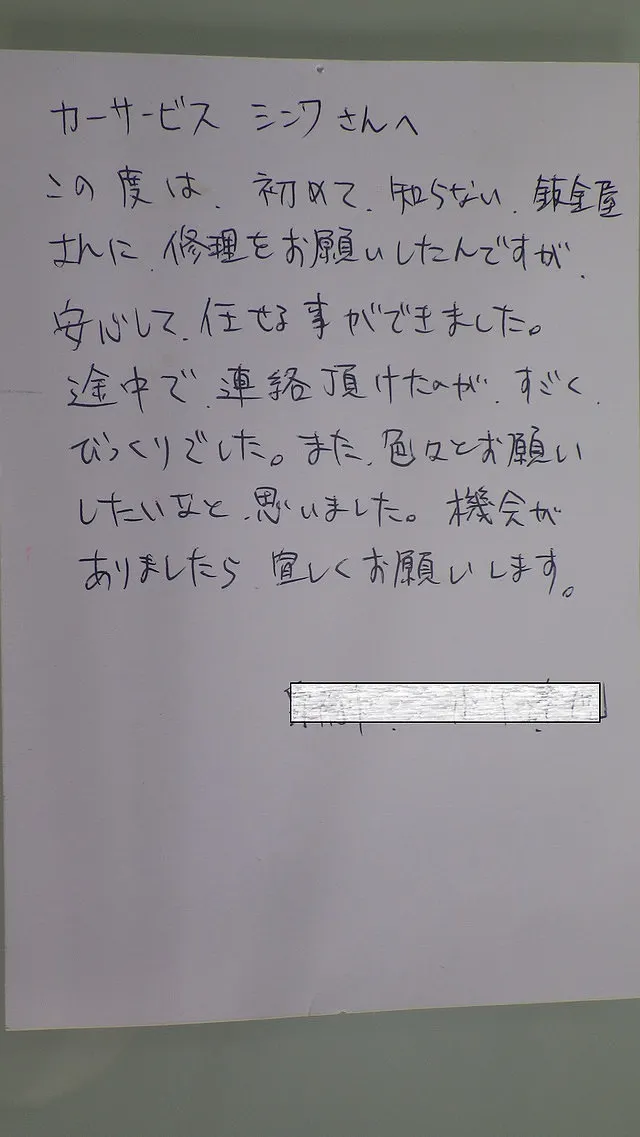 カーサービス シンワさんへ
この度は、初めて、知らない、鈑金屋
さんに、修理をお願いしたんですが、
安心して、任せる事ができました。
途中で、連絡頂けたのが、すごく、
びっくりでした。また、色々とお願い
したいなと、思いました。機会が
ありましたら 宜しくお願いします。